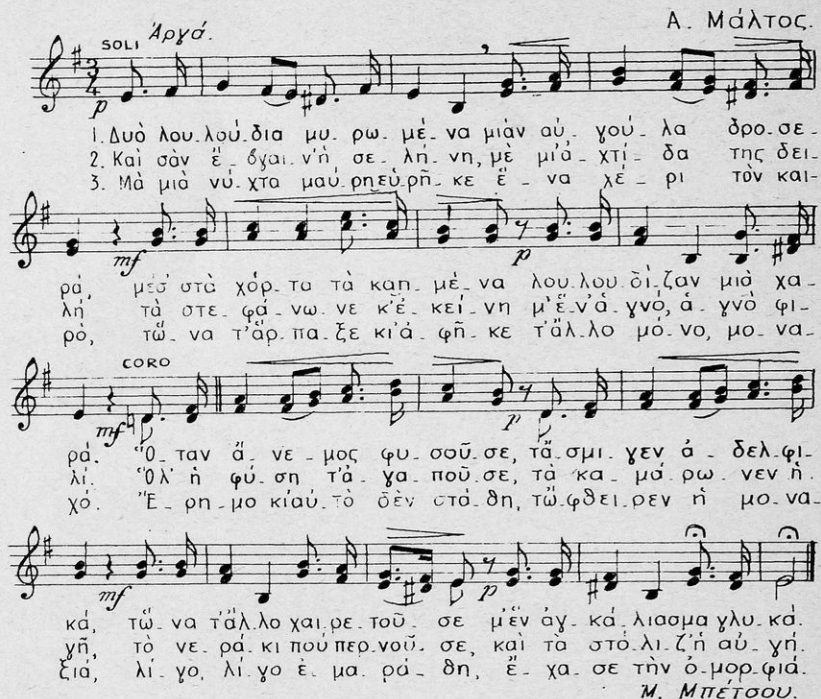 Α. Μάλτος.
SOLI Ἀργά.
p
1. Δυὸ λου_λού_δια μυ_ρω_μέ_να μιὰν αὐ_γού_λα δρο_σε-
2. Καὶ σὰν ἔ_βγαι_ν'ἡ σε_λή_νη, μὲ μι'ἀ_χτί_δα της δει-
3. Μὰ μιὰ νύ_χτα μαύ_ρη εὑρῆ_κε ἕ_να χέ_ρι τὸν και-
mf p
ρά, μέσ' στὰ χόρ_τα τὰ καη_μέ_να λου_λου_δί_ζαν μιὰ χα-
λή τὰ στε_φά_νω_νε κ'ἐ_κεί_νη μ'ἕν'ἁ_γνό, ἁ_γνὸ φι-
ρό, τὤ_να τ'ἅρ_πα_ξε κι'ἀ_φῆ_κε τ'ἄλ_λο μό_νο, μο_να-
CORO
mf p
ρά. Ὅ_ταν ἄ_νε_μος φυ_σοῦ_σε, τἄσμι_γεν ἀ_δελφι-
λί. Ὅλ' ἡ φύ_ση τ'ἀ_γα_ποῦ_σε, τὰ κα_μά_ρω_νεν ἡ
χό. Ἔ_ρη_μο κι'αὐ_τὸ δὲν στά_θη, τὤ_φθει_ρεν ἡ μο_να-
mf p
κά, τὤ_να τ'ἄλ_λο χαι_ρε_τοῦ_σε μ'ἕν ἀγ_κά_λιασμα γλυ_κά.
γῆ, τὸ νε_ρά_κι ποὺ περ_νοῦ_σε, καὶ τὰ στό_λι_ζ'ἡ αὐ_γή.
ξιά, λί_γο, λί_γο ἐ_μα_ρά_θη, ἔ_χα_σε τὴν ὀ_μορ_φιά.
Μ. Μπέτσου.